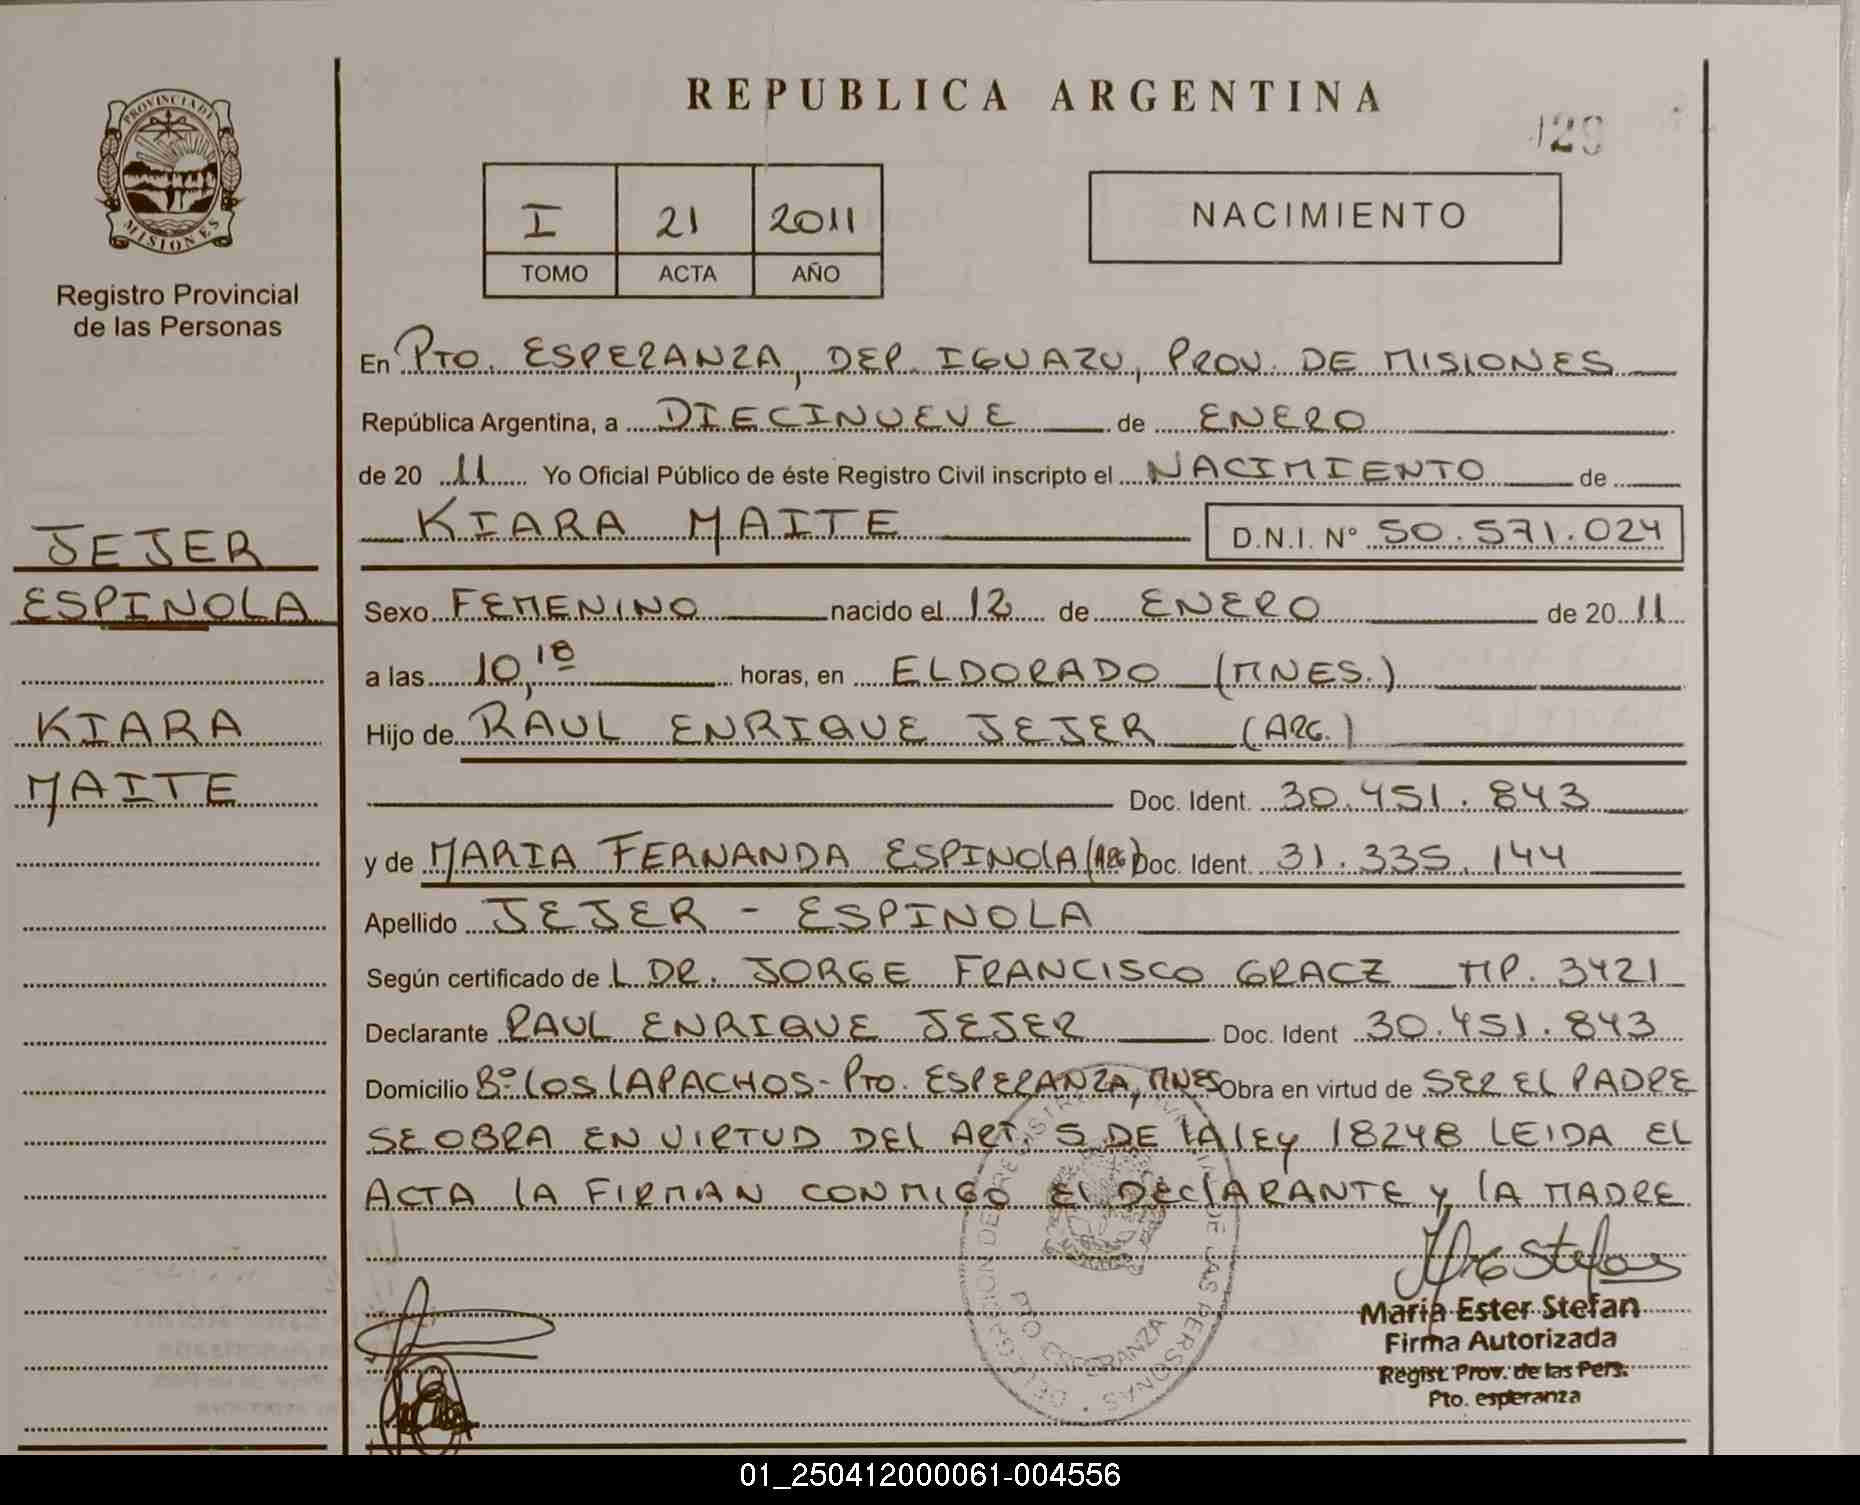 REPUBLICA ARGENTINA
129
PROVINCIA DE
MISIONES
Registro Provincial
de las Personas
I 21 2011
TOMO ACTA AÑO
NACIMIENTO
En PTO. ESPERANZA, DEP. IGUAZU, PROV. DE MISIONES
República Argentina, a DIECINUEVE de ENERO
de 20 11 Yo Oficial Público de éste Registro Civil inscripto el NACIMIENTO de
KIARA MAITE D.N.I. Nº 50.571.024
JEJER
ESPINOLA
KIARA
MAITE
Sexo FEMENINO nacido el 12 de ENERO de 20 11
a las 10,18 horas, en ELDORADO (MNES.)
Hijo de RAUL ENRIQUE JEJER (ARG.)
Doc. Ident. 30.451.843
y de MARIA FERNANDA ESPINOLA (ARG) Doc. Ident. 31.335.144
Apellido JEJER - ESPINOLA
Según certificado de L DR. JORGE FRANCISCO GRACZ MP. 3421
Declarante RAUL ENRIQUE JEJER Doc. Ident 30.451.843
Domicilio Bº LOS LAPACHOS - PTO. ESPERANZA, MNES Obra en virtud de SER EL PADRE
SE OBRA EN VIRTUD DEL ART. 5 DE LA LEY 18248 LEIDA EL
ACTA LA FIRMAN CONMIGO EL DECLARANTE Y LA MADRE
DELEGACION DE REGISTRO PROVINCIAL DE LAS PERSONAS
PTO ESPERANZA
Maria Ester Stefan
Firma Autorizada
Regist. Prov. de las Pers.
Pto. esperanza
01_250412000061-004556